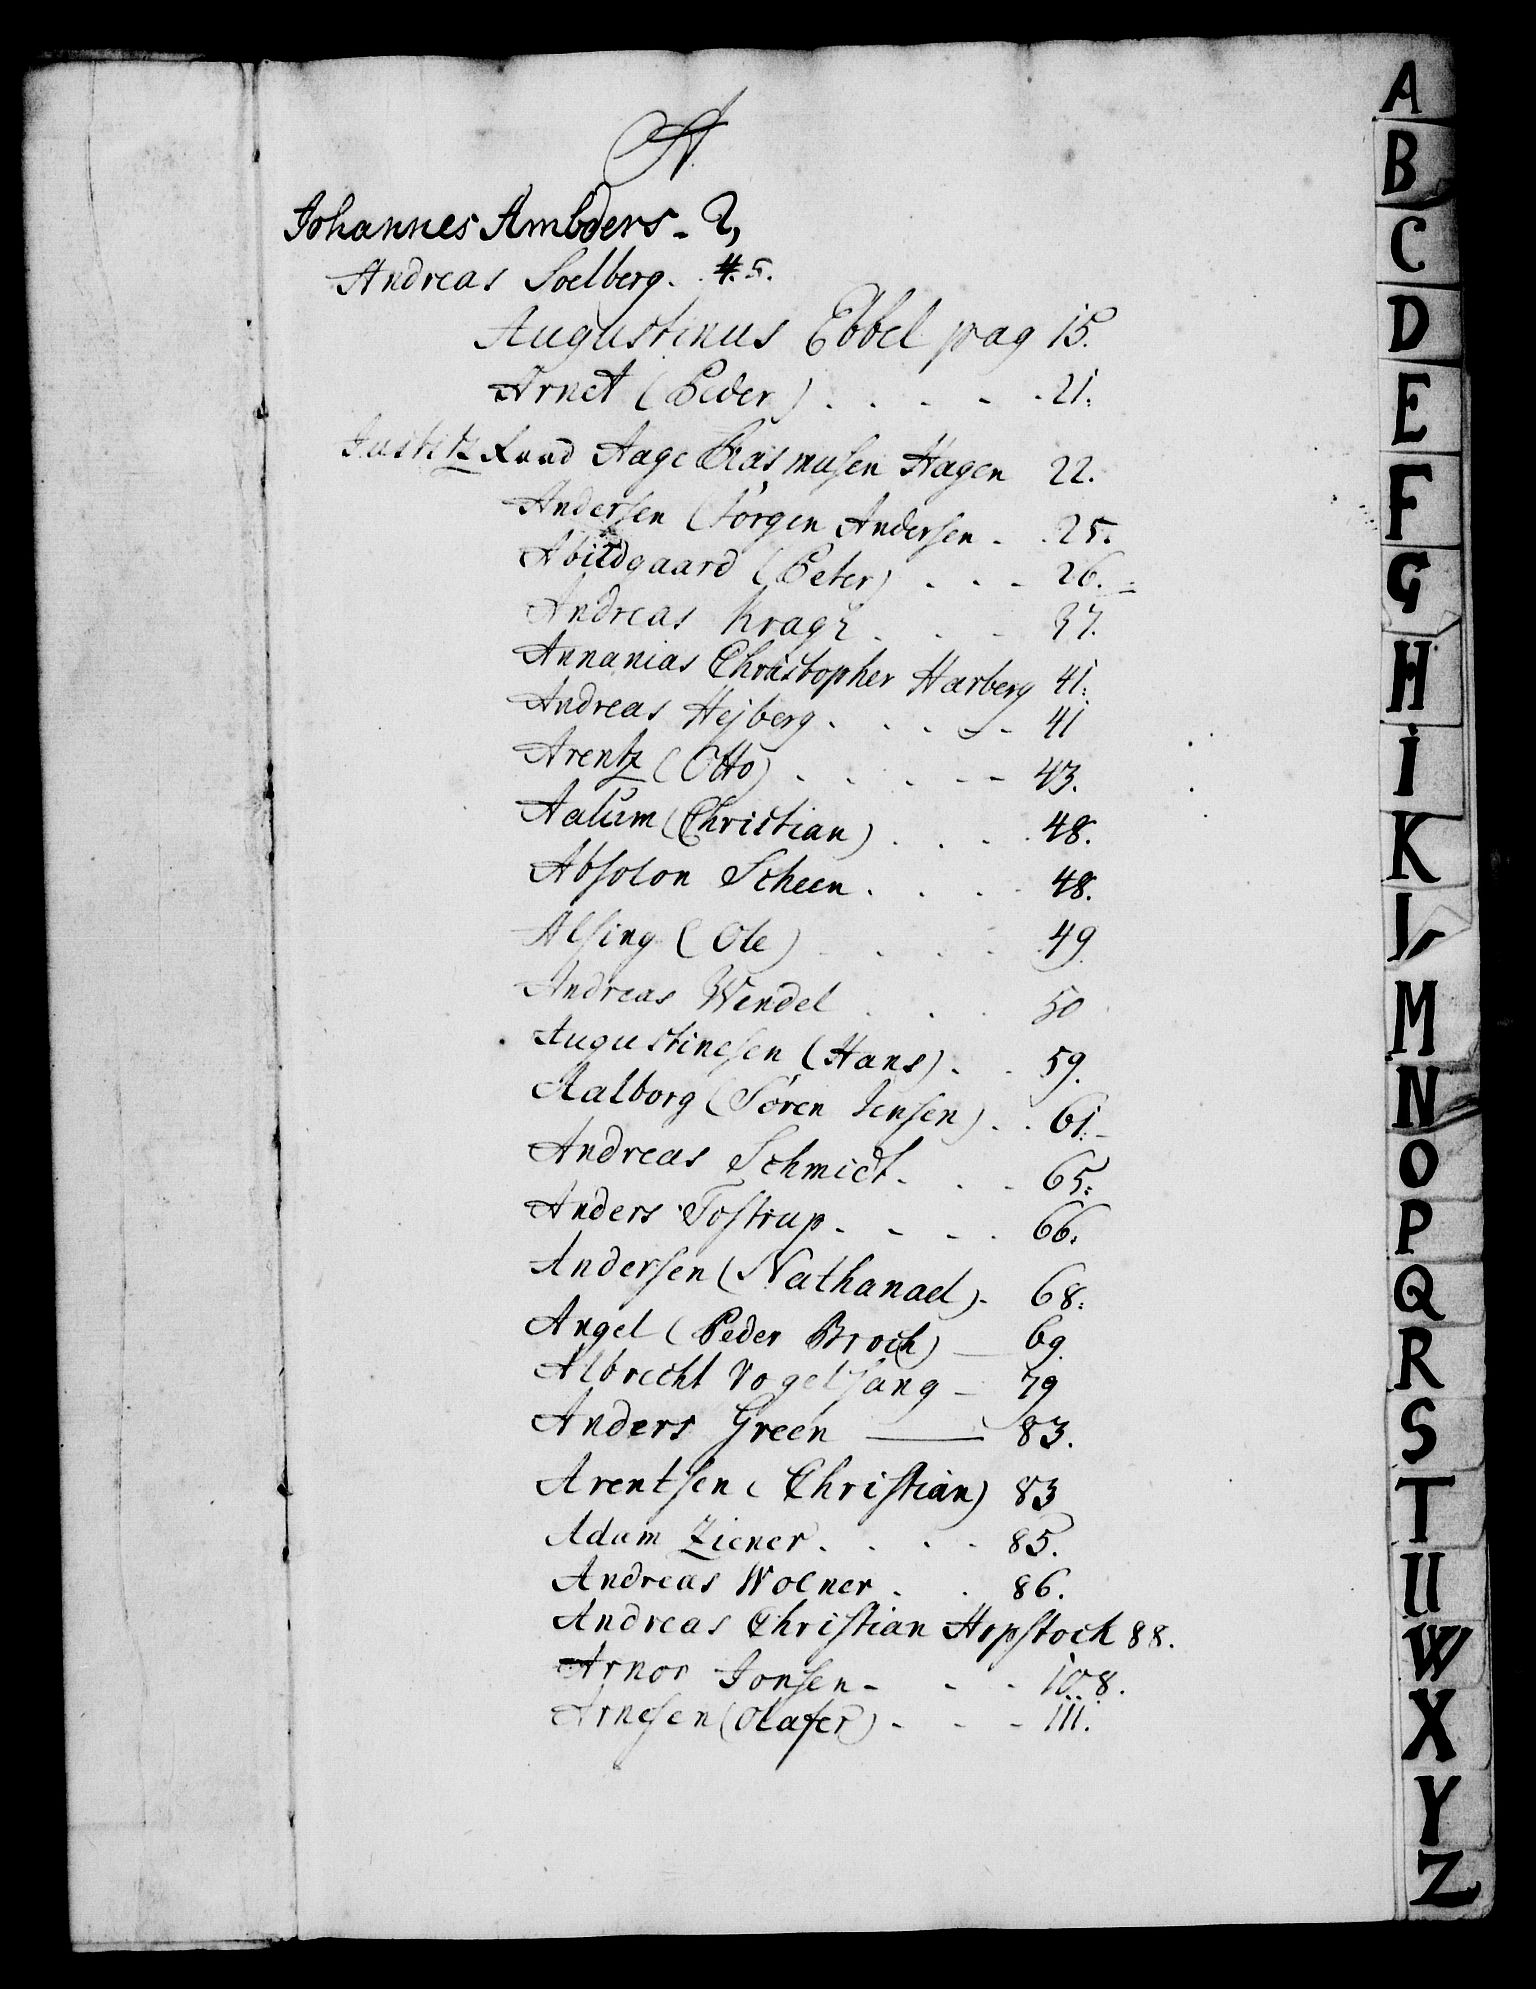 A
Johannes Ambders - 2,
Andreas Soelberg. #. 5.
Augustinus Ebbel pag 15.
Arnet (Peder) . . . - . 21.
Justitz Raad Aage Rasmusen Hagen 22.
Andersen (Jörgen Andersen - . 25.
Abildgaard (Peter) . - - 26.
Andreas Kragh . . - 37.
Annanias Christopher Harberg 41.
Andreas Hejberg . . - - - 41
Arentz (Otto) . . . - - 43.
Aalum (Christian) . . . . 48.
Absolon Scheen . . . . 48.
Alsing (Ole) . . . . 49.
Andreas Wendel . . . 50
Augustinesen (Hans) . . 59.
Aalborg (Sören Jensen) . . 61.
Andreas Schmidt . . . 65.
Anders Tostrup - - - . 66.
Andersen (Nathanael) - 68.
Angel (Peder Broch) — 69.
Albrecht Vogelsang - 79
Anders Green — 83.
Arentsen (Christian) 83
Adam Ziener . . . . 85.
Andreas Wolner . . 86.
Andreas Christian Hopstock 88.
Arnor Jonsen - - - 108.
Arnesen (Olafer) - - - 111.
A
B
C
D
E
F
G
H
I
K
L
M
N
O
P
Q
R
S
T
U
W
X
Y
Z